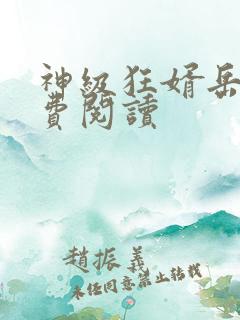 神级狂婿岳
費閱讀
趙振義
未经同意禁止转载